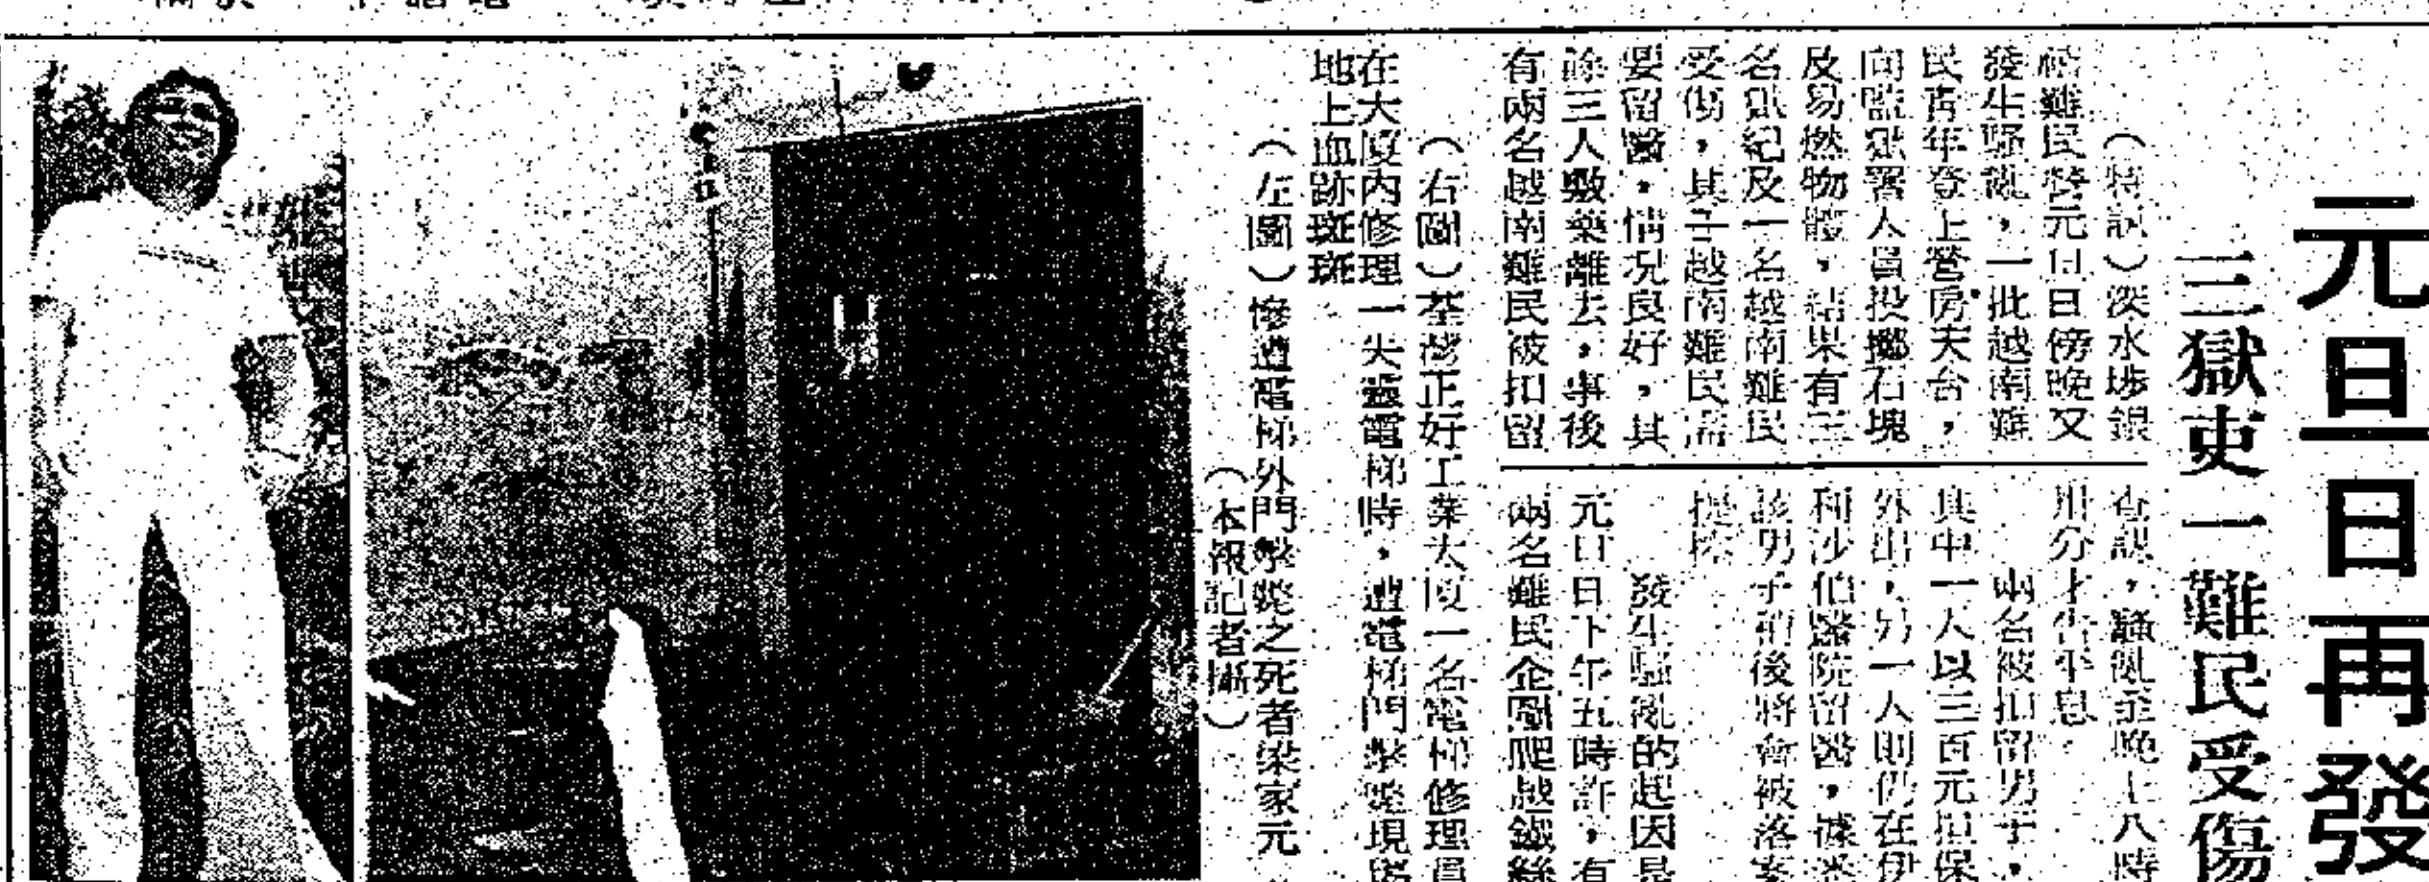 元旦日再發
三獄吏一難民受傷
（特訊）深水埗銀
難民營元旦日傍晚又
發生騷亂，一批越南難
民青年登上營房天台，
向監獄署人員投擲石塊
及易燃物體，結果有三
名獄紀及一名越南難民
受傷，其子越南難民
要留醫，情况良好，其
餘三人敷藥離去，事後
有兩名越南難民被扣留
查訊，騷亂至晚上八時
分才告平息
兩名被扣留男子，
其中一人以三百元担保
外出，另一人則仍在伊
利沙伯醫院留醫，據
該男子稍後將會被落案
提控
發生騷亂的起因是
元旦日下午五時許，有
兩名難民企圖爬越鐵絲
（右圖）荃灣正好工業大厦一名電梯修理員
在大厦內修理一失靈電梯時，遭電梯門擊斃現塲
地上血跡斑斑
（左圖）慘遭電梯外門擊斃之死者梁家元
（本報記者攝）